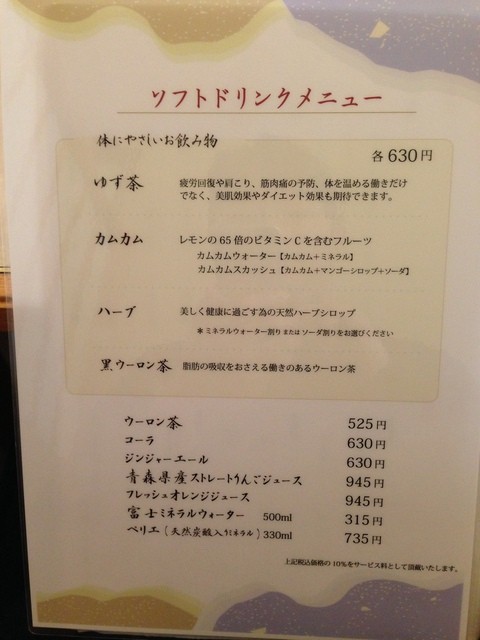 ソフトドリンクメニュー
体にやさしいお飲み物
各 630円
ゆず茶 疲労回復や肩こり、筋肉痛の予防、体を温める働きだけ
でなく、美肌効果やダイエット効果も期待できます。
カムカム レモンの65倍のビタミンCを含むフルーツ
カムカムウォーター【カムカム+ミネラル】
カムカムスカッシュ【カムカム+マンゴーシロップ+ソーダ】
ハーブ 美しく健康に過ごす為の天然ハーブシロップ
＊ミネラルウォーター割り または ソーダ割りをお選びください
黒ウーロン茶 脂肪の吸収をおさえる働きのあるウーロン茶
ウーロン茶 525円
コーラ 630円
ジンジャーエール 630円
青森県産ストレートりんごジュース 945円
フレッシュオレンジジュース 945円
富士ミネラルウォーター 500ml 315円
ペリエ(天然炭酸入りミネラル)330ml 735円
上記税込価格の10%をサービス料として頂戴いたします。